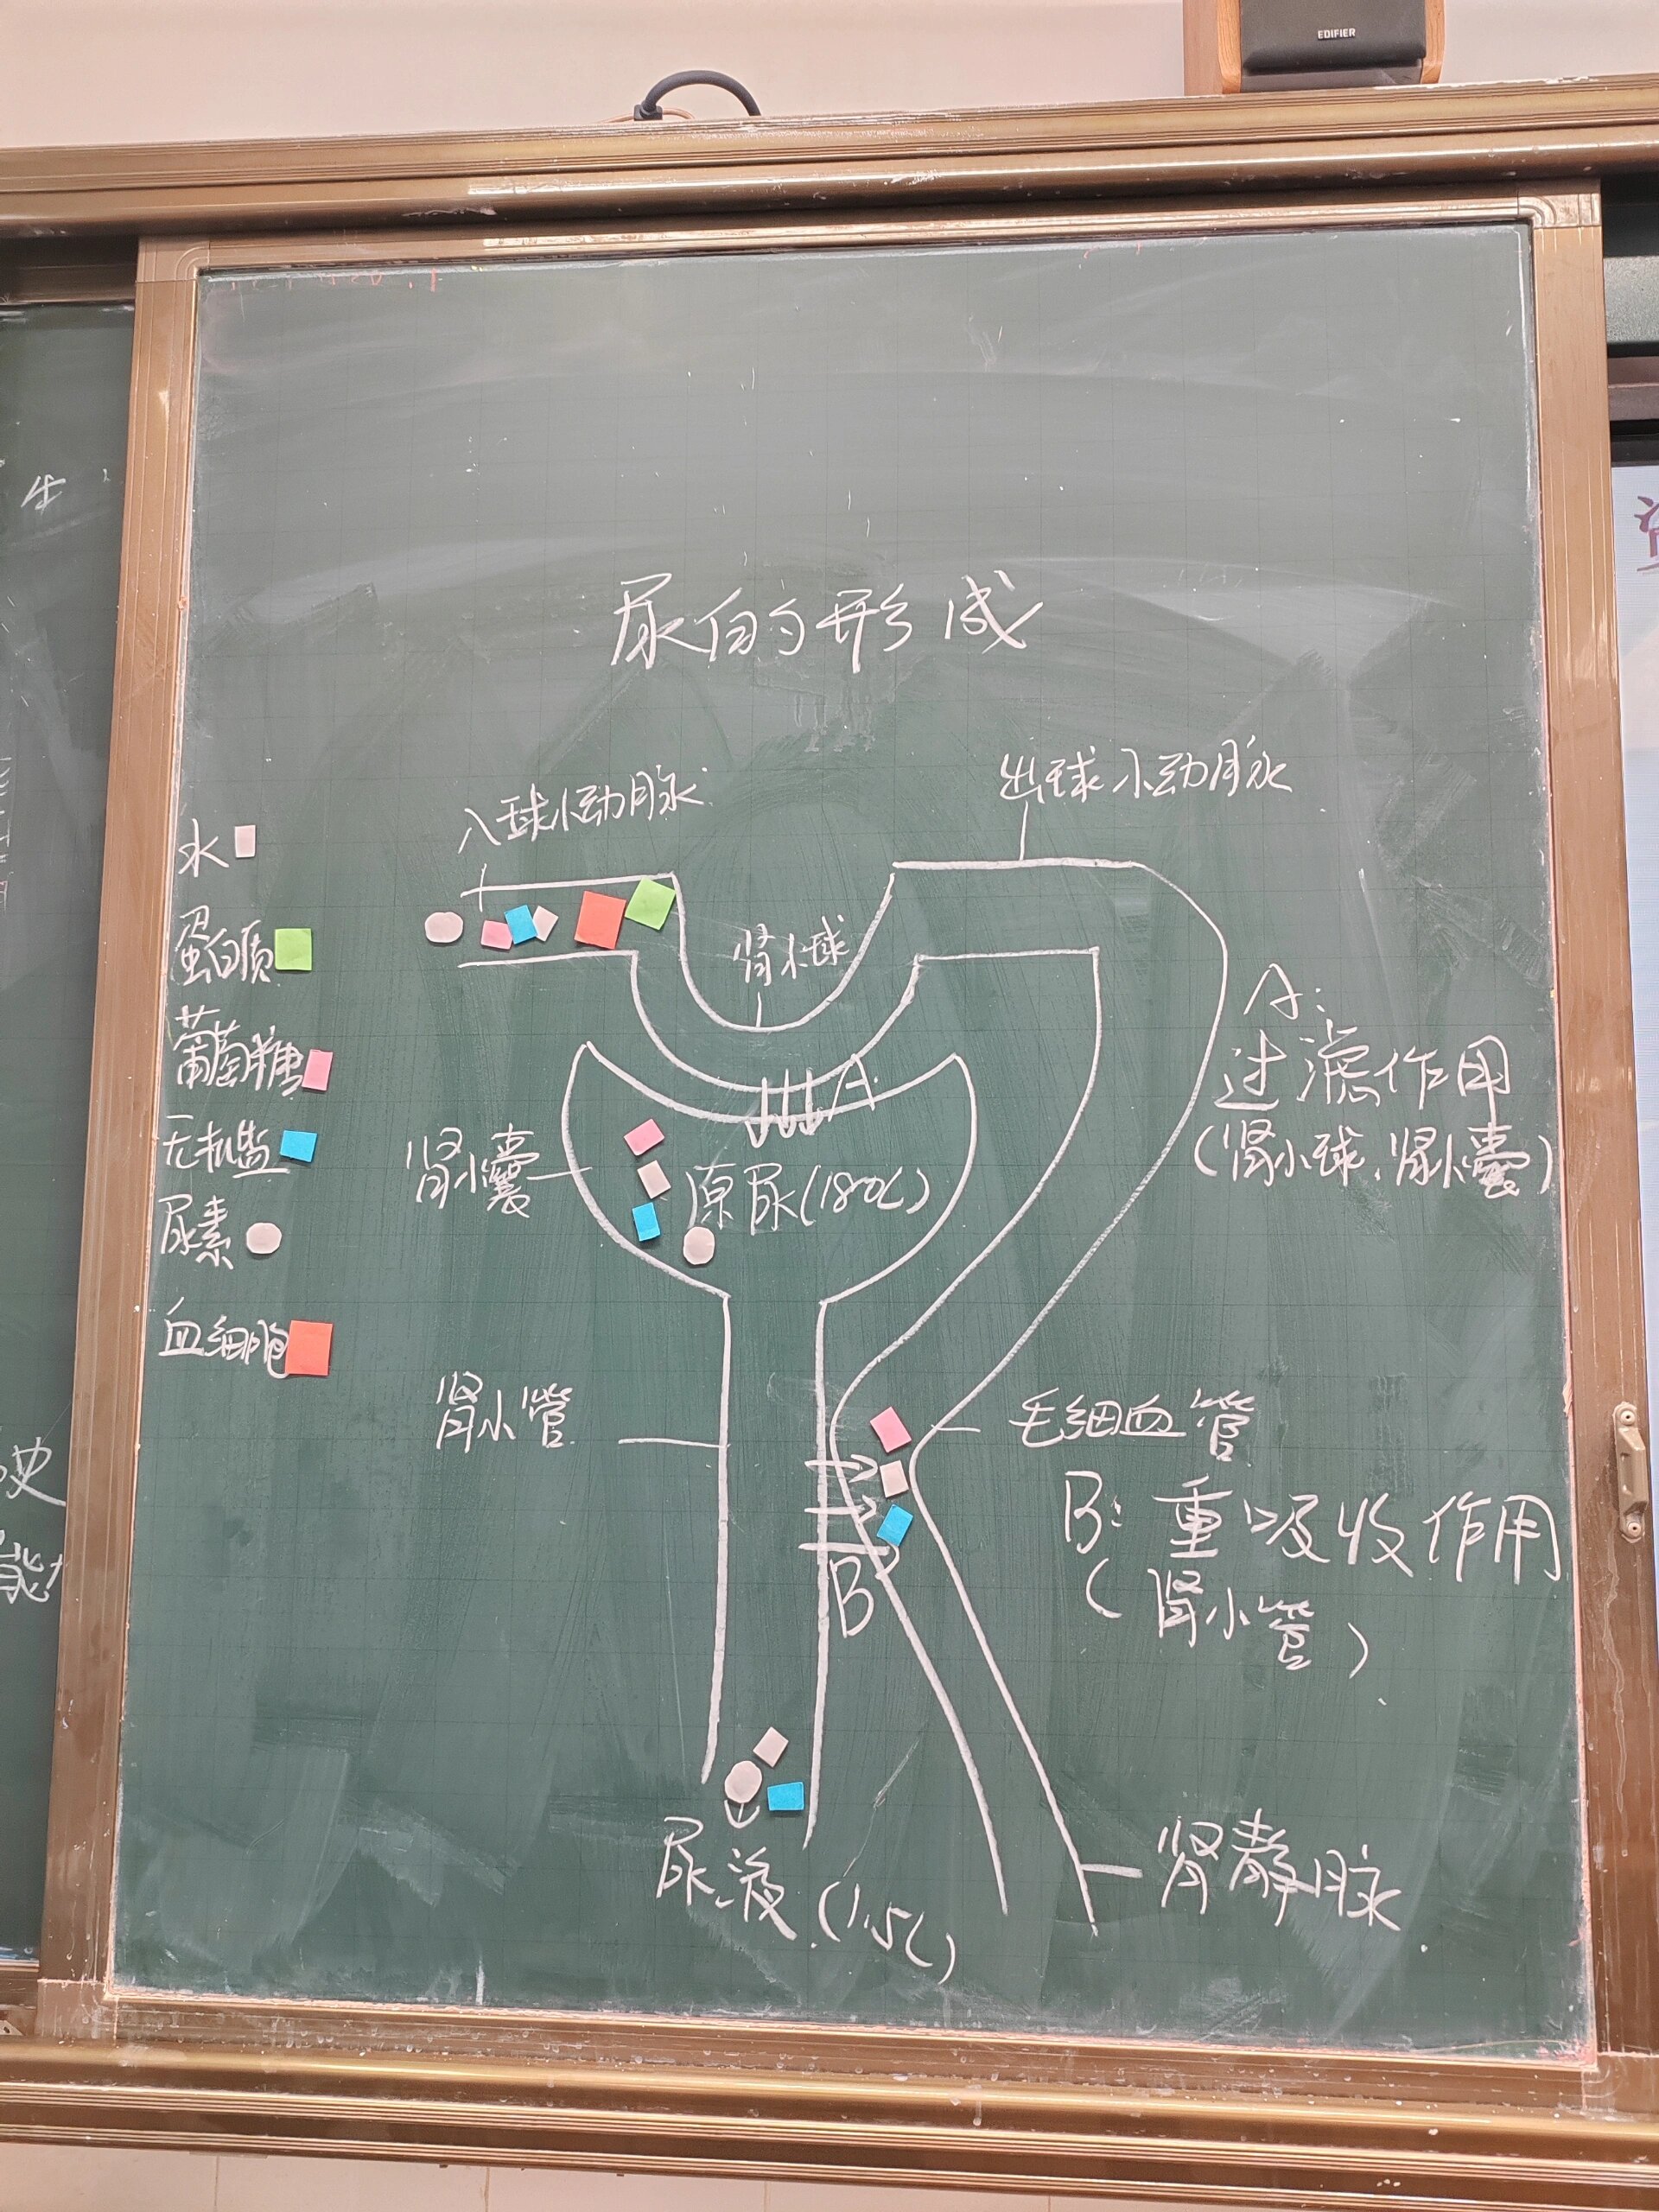 EDIFIER
生
尿的形成
入球小动脉
出球小动脉
水
蛋白质
葡萄糖
无机盐
尿素
血细胞
肾小球
A
A:
过滤作用
(肾小球、肾小囊)
肾小囊
原尿(180L)
肾小管
毛细血管
B:重吸收作用
(肾小管)
B
尿液(1.5L)
肾静脉
能